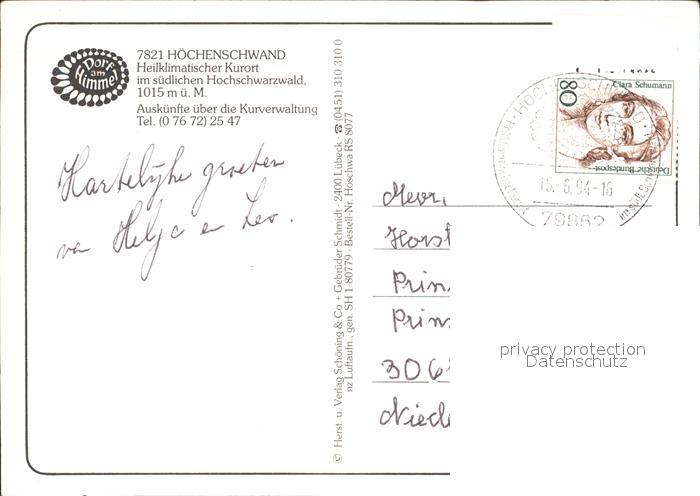 Dorf
am
Himmel
7821 HÖCHENSCHWAND
Heilklimatischer Kurort
im südlichen Hochschwarzwald,
1015 m ü. M.
Auskünfte über die Kurverwaltung
Tel. (0 76 72) 25 47
Hartelijke groeten
van Helga en Leo.
© Herst. u. Verlag Schöning & Co + Gebrüder Schmidt · 2400 Lübeck · ☎ (0451) 310 310 0
nz Luftaufn., gen. SH 1-80779 · Bestell-Nr. Höschwa RS 8077
80
Clara Schumann
Deutsche Bundespost
15.-6.94-16
79862
Mevr.
Horst
Prin
Prin
306
Niede
privacy protection
Datenschutz